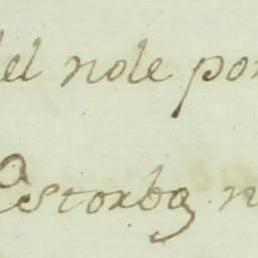 del nole por
Estorba n